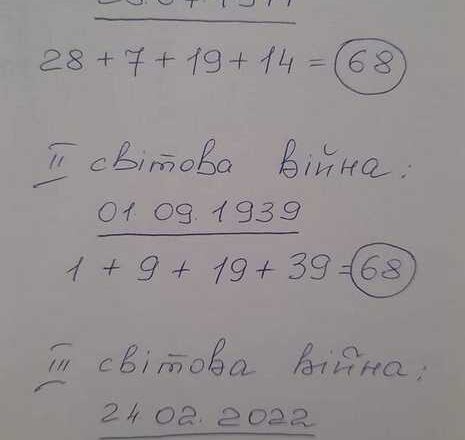 28 + 7 + 19 + 14 = 68
II світова війна:
01 09. 1939
1 + 9 + 19 + 39 = 68
III світова війна:
24 02. 2022